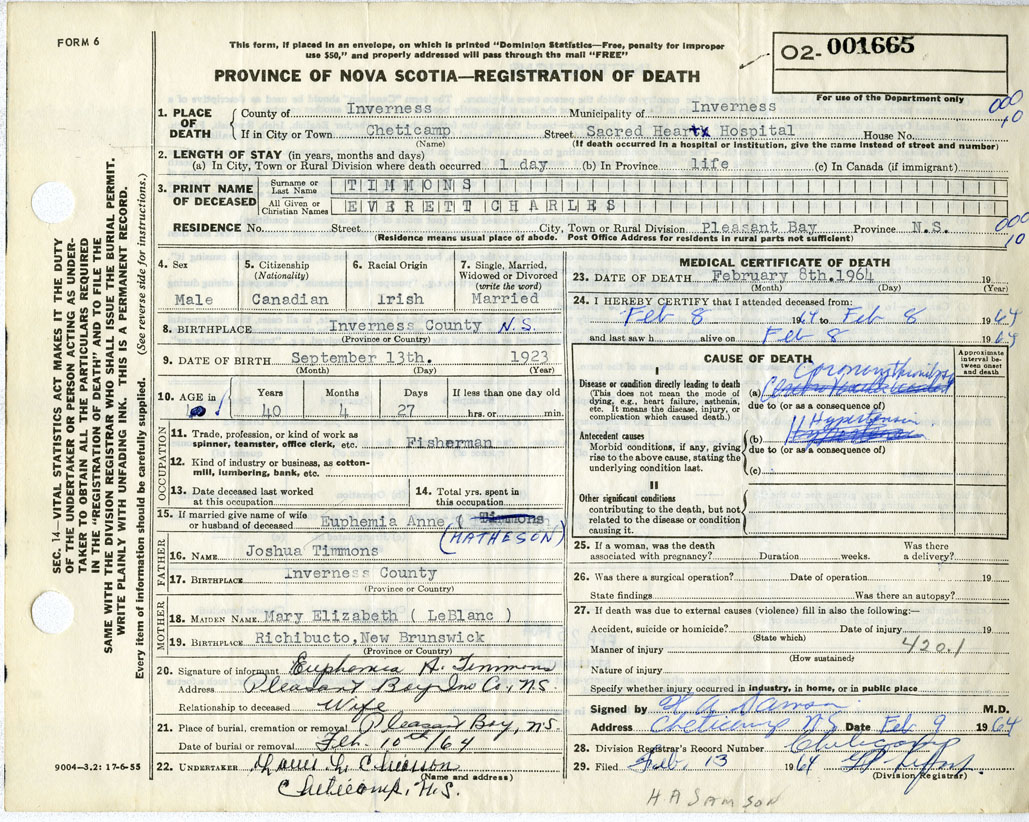 FORM 6
This form, if placed in an envelope, on which is printed "Dominion Statistics—Free, penalty for improper
use $50," and properly addressed will pass through the mail "FREE"
PROVINCE OF NOVA SCOTIA—REGISTRATION OF DEATH
02-001665
For use of the Department only
000
10
1. PLACE OF DEATH
County of Inverness Municipality of Inverness
If in City or Town Cheticamp Street Sacred Heart Hospital House No.
(Name) (If death occurred in a hospital or institution, give the name instead of street and number)
2. LENGTH OF STAY (in years, months and days)
(a) In City, Town or Rural Division where death occurred 1 day (b) In Province life (c) In Canada (if immigrant)
3. PRINT NAME OF DECEASED
Surname or Last Name TIMMONS
All Given or Christian Names EVERETT CHARLES
000
10
RESIDENCE No. Street City, Town or Rural Division Pleasant Bay Province N.S.
(Residence means usual place of abode. Post Office Address for residents in rural parts not sufficient)
4. Sex
Male
5. Citizenship (Nationality)
Canadian
6. Racial Origin
Irish
7. Single, Married, Widowed or Divorced (write the word)
Married
8. BIRTHPLACE Inverness County N.S.
(Province or County)
9. DATE OF BIRTH September 13th. 1923
(Month) (Day) (Year)
10. AGE in Years Months Days If less than one day old
40 4 27 hrs. or min.
OCCUPATION
11. Trade, profession, or kind of work as
spinner, teamster, office clerk, etc. Fisherman
12. Kind of industry or business, as cotton-
mill, lumbering, bank, etc.
13. Date deceased last worked
at this occupation
14. Total yrs. spent in
this occupation
15. If married give name of wife
or husband of deceased Euphemia Anne ( Timmons
(MATHESON)
FATHER
16. NAME Joshua Timmons
17. BIRTHPLACE Inverness County
(Province or County)
MOTHER
18. MAIDEN NAME Mary Elizabeth ( LeBlanc )
19. BIRTHPLACE Richibucto, New Brunswick
(Province or County)
20. Signature of informant Euphemia A. Timmons
Address Pleasant Bay Inv Co, N.S.
Relationship to deceased Wife
21. Place of burial, cremation or removal Pleasant Bay, N.S.
Date of burial or removal Feb. 10th/64
22. UNDERTAKER
(Name and address)
Cheticamp, N.S.
9004—3.2: 17-6-55
MEDICAL CERTIFICATE OF DEATH
23. DATE OF DEATH February 8th.1964 19
(Month) (Day) (Year)
24. I HEREBY CERTIFY that I attended deceased from:
Feb 8 1964 to Feb 8 1964
and last saw h alive on Feb 8 1964
CAUSE OF DEATH
Approximate interval between onset and death
I
Disease or condition directly leading to death
(This does not mean the mode of
dying, e.g., heart failure, asthenia,
etc. It means the disease, injury, or
complication which caused death.)
(a) Coronary thrombosis
due to (or as a consequence of)
Antecedent causes
Morbid conditions, if any, giving
rise to the above cause, stating the
underlying condition last.
(b) Hypertension
due to (or as a consequence of)
(c)
II
Other significant conditions
contributing to the death, but not
related to the disease or condition
causing it.
25. If a woman, was the death
associated with pregnancy? Duration weeks. Was there
a delivery?
26. Was there a surgical operation? Date of operation 19
State findings Was there an autopsy?
27. If death was due to external causes (violence) fill in also the following:—
Accident, suicide or homicide? Date of injury 19
(State which)
Manner of injury 420.1
(How sustained)
Nature of injury
Specify whether injury occurred in industry, in home, or in public place
Signed by H A Samson M.D.
Address Cheticamp N.S. Date Feb 9 1964
28. Division Registrar's Record Number Cheticamp
29. Filed Feb. 13 1964
(Division Registrar)
H A SAMSON
SEC. 14—VITAL STATISTICS ACT MAKES IT THE DUTY
OF THE UNDERTAKER OR PERSON ACTING AS UNDER-
TAKER TO OBTAIN ALL THE PARTICULARS REQUIRED
IN THE "REGISTRATION OF DEATH" AND TO FILE THE
SAME WITH THE DIVISION REGISTRAR WHO SHALL ISSUE THE BURIAL PERMIT.
WRITE PLAINLY WITH UNFADING INK. THIS IS A PERMANENT RECORD.
Every item of information should be carefully supplied. (See reverse side for instructions.)